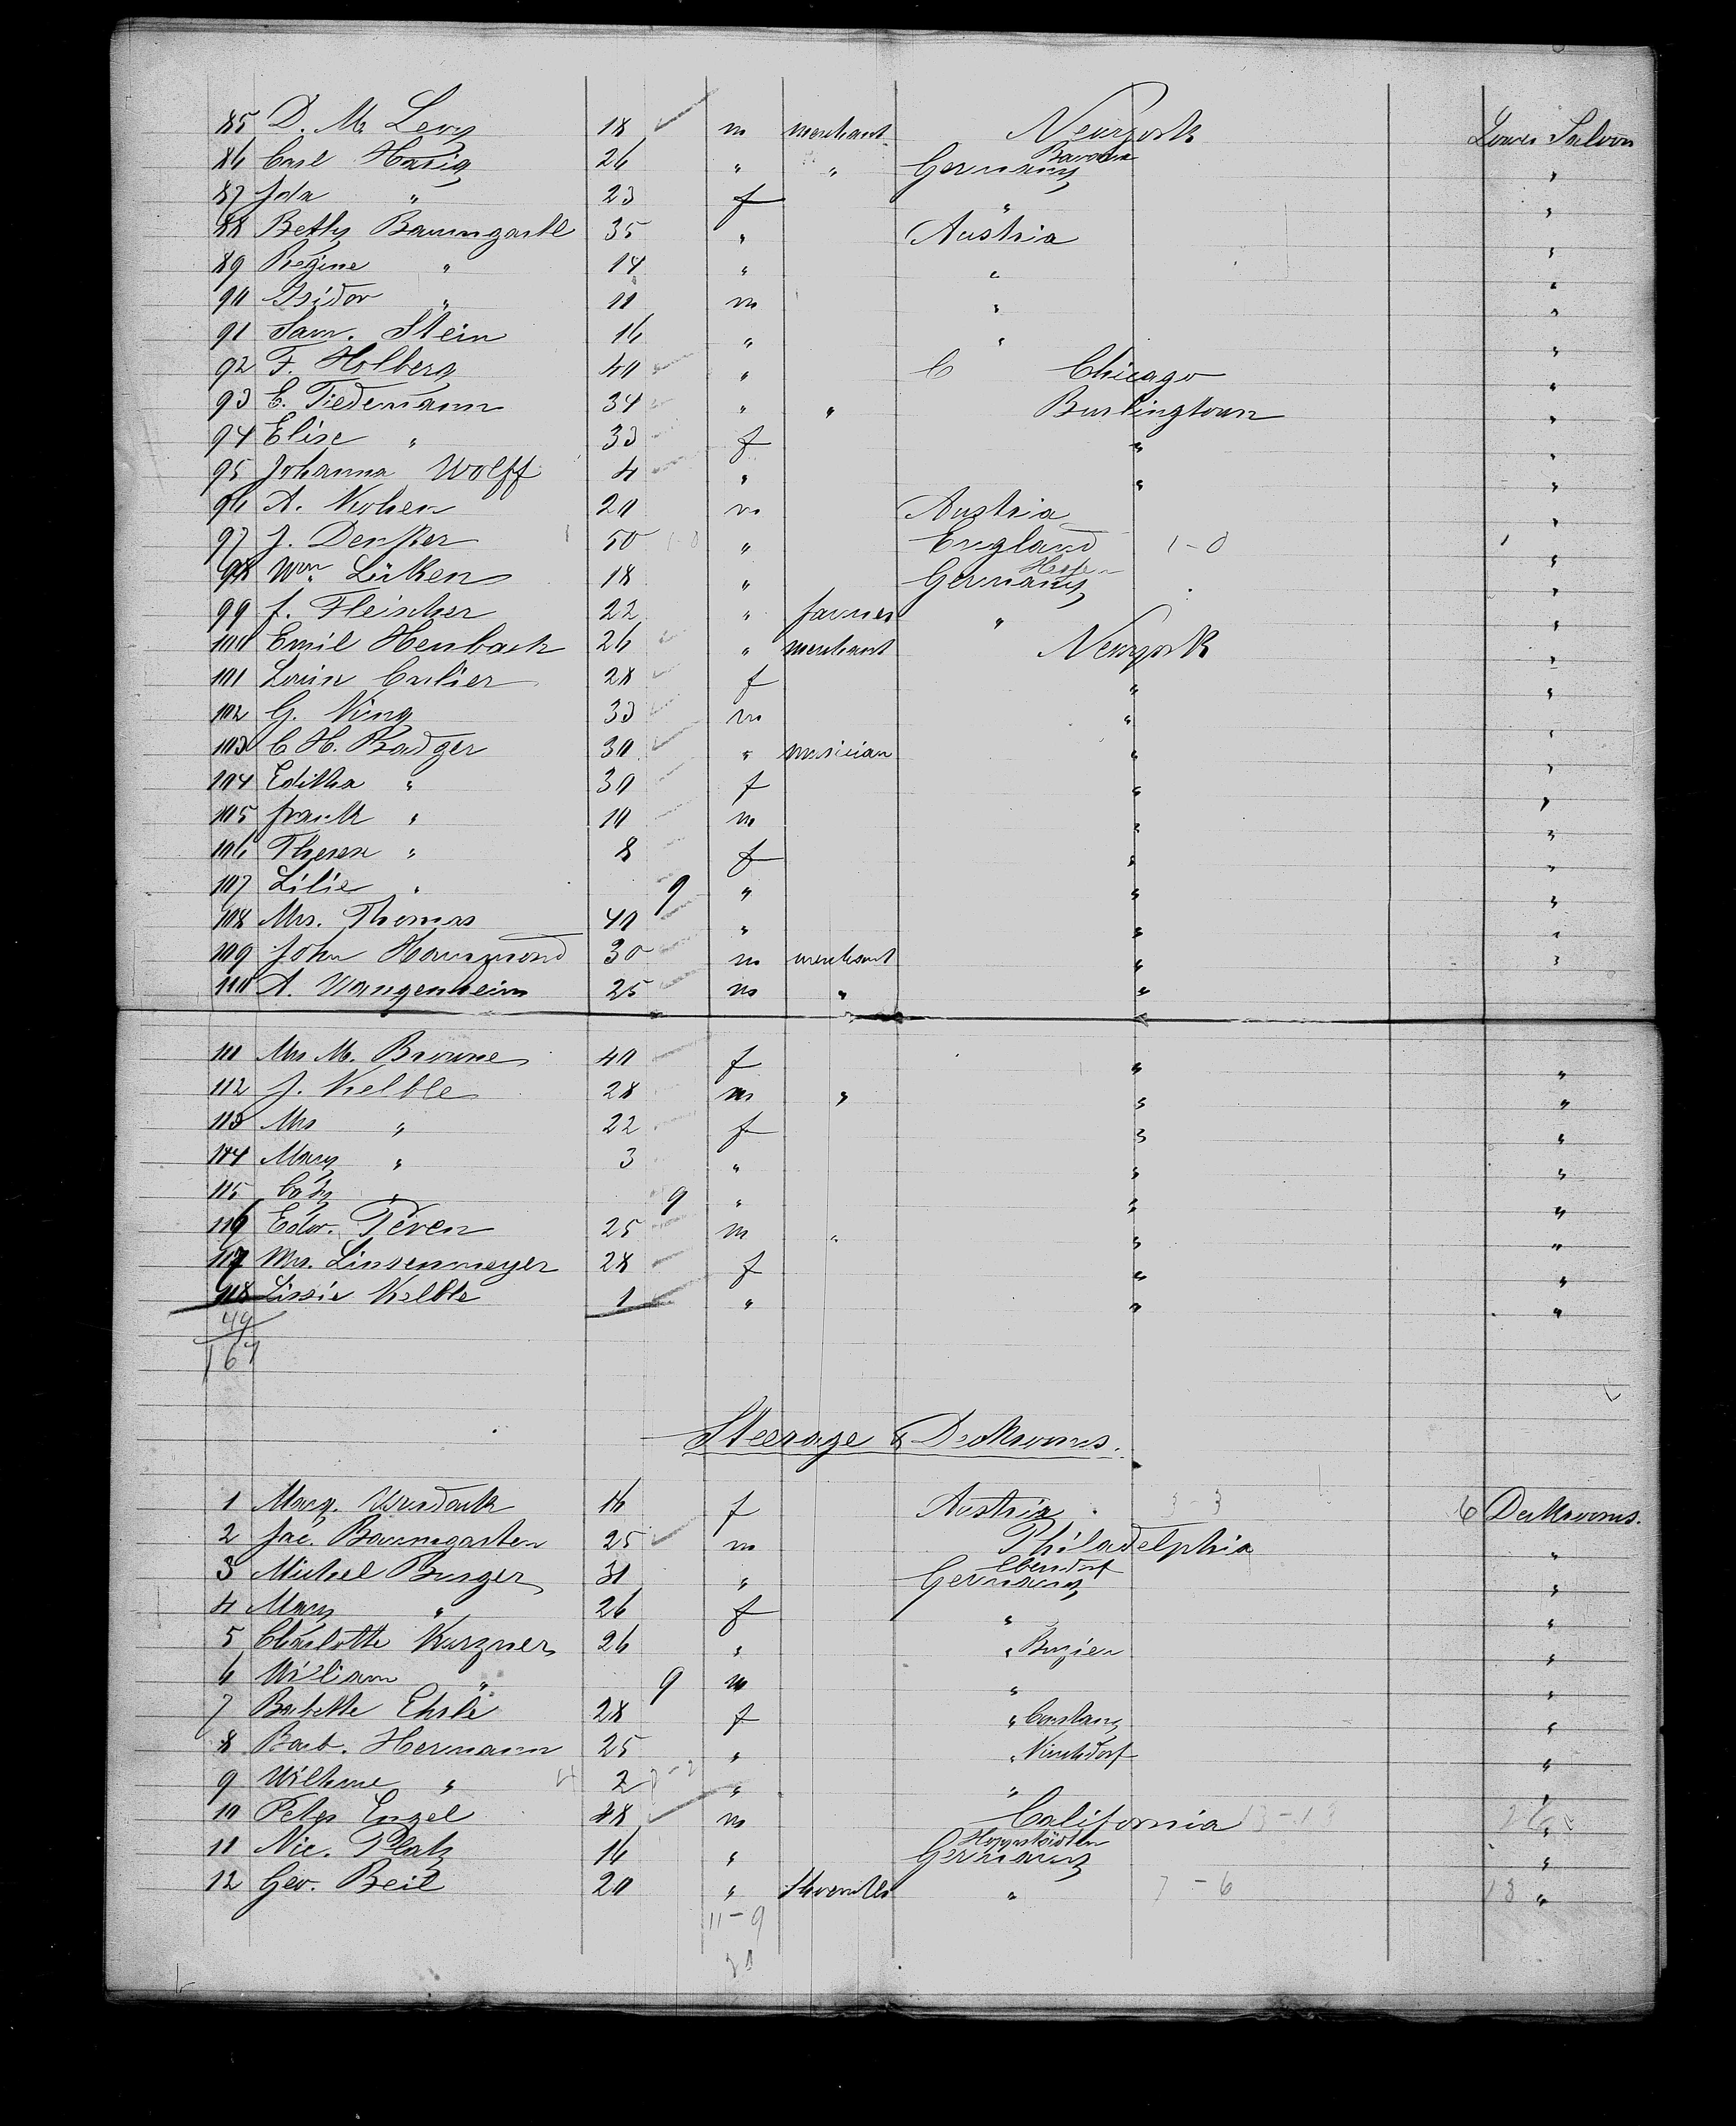 85 D. M. Levy 18 m merchant Newyork Lower Saloon
86 Carl Hasig 26 " " Germany Bavaria "
87 Ida " 23 f " "
88 Betty Baumgartl 35 " Austria "
89 Regine " 14 " " "
90 Isidor " 11 m " "
91 Sam. Stein 16 " " "
92 F. Holberg 40 " Chicago "
93 E. Tiedemann 34 " " Burlingtown "
94 Elise " 33 f " "
95 Johanna Wolff 4 " " "
96 A. Kohen 20 m Austria "
97 J. Denker 50 " England 1-0 "
98 Wm. Lüken 18 " Germany "
99 f. Fleischer 22 " farmer " "
100 Emil Heubach 26 " merchant Newyork "
101 28 f " "
102 G. King 33 m " "
103 C H. Badger 30 " musician " "
104 Editha " 30 f " "
105 frank " 10 m " "
106 Therese " 8 f " "
107 Lilie " 9 " " "
108 Mrs. Thomas 40 " " "
109 John Hammond 30 m merchant " "
110 A. Wangenheim 25 m " "
111 Mrs M. Browne 40 f " "
112 J. Kelble 28 m " " "
113 Mrs " 22 f " "
114 Mary " 3 " " "
115 " 9 " " "
116 Edw. Peven 25 m " " "
117 Mrs. Linsenmeyer 28 f " "
118 Lissie Kelble 1 " " "
49
167
Steerage & Deckrooms.
1 16 f Austria 3-3 6 Deckrooms.
2 Jac. Baumgarten 25 m Philadelphia "
3 Michel Burger 31 " Germany "
4 Mary " 26 f " "
5 Charlotte Kurzner 26 " " "
6 William " 9 m " "
7 Babette Ehrle 28 f " Constanz "
8 Barb. Hermann 25 " " "
9 " 2 " " "
10 Peter Engel 48 m California "
11 Nic. Platz 16 " Germany "
12 Geo. Beil 20 " " 7-6 18 "
11-9